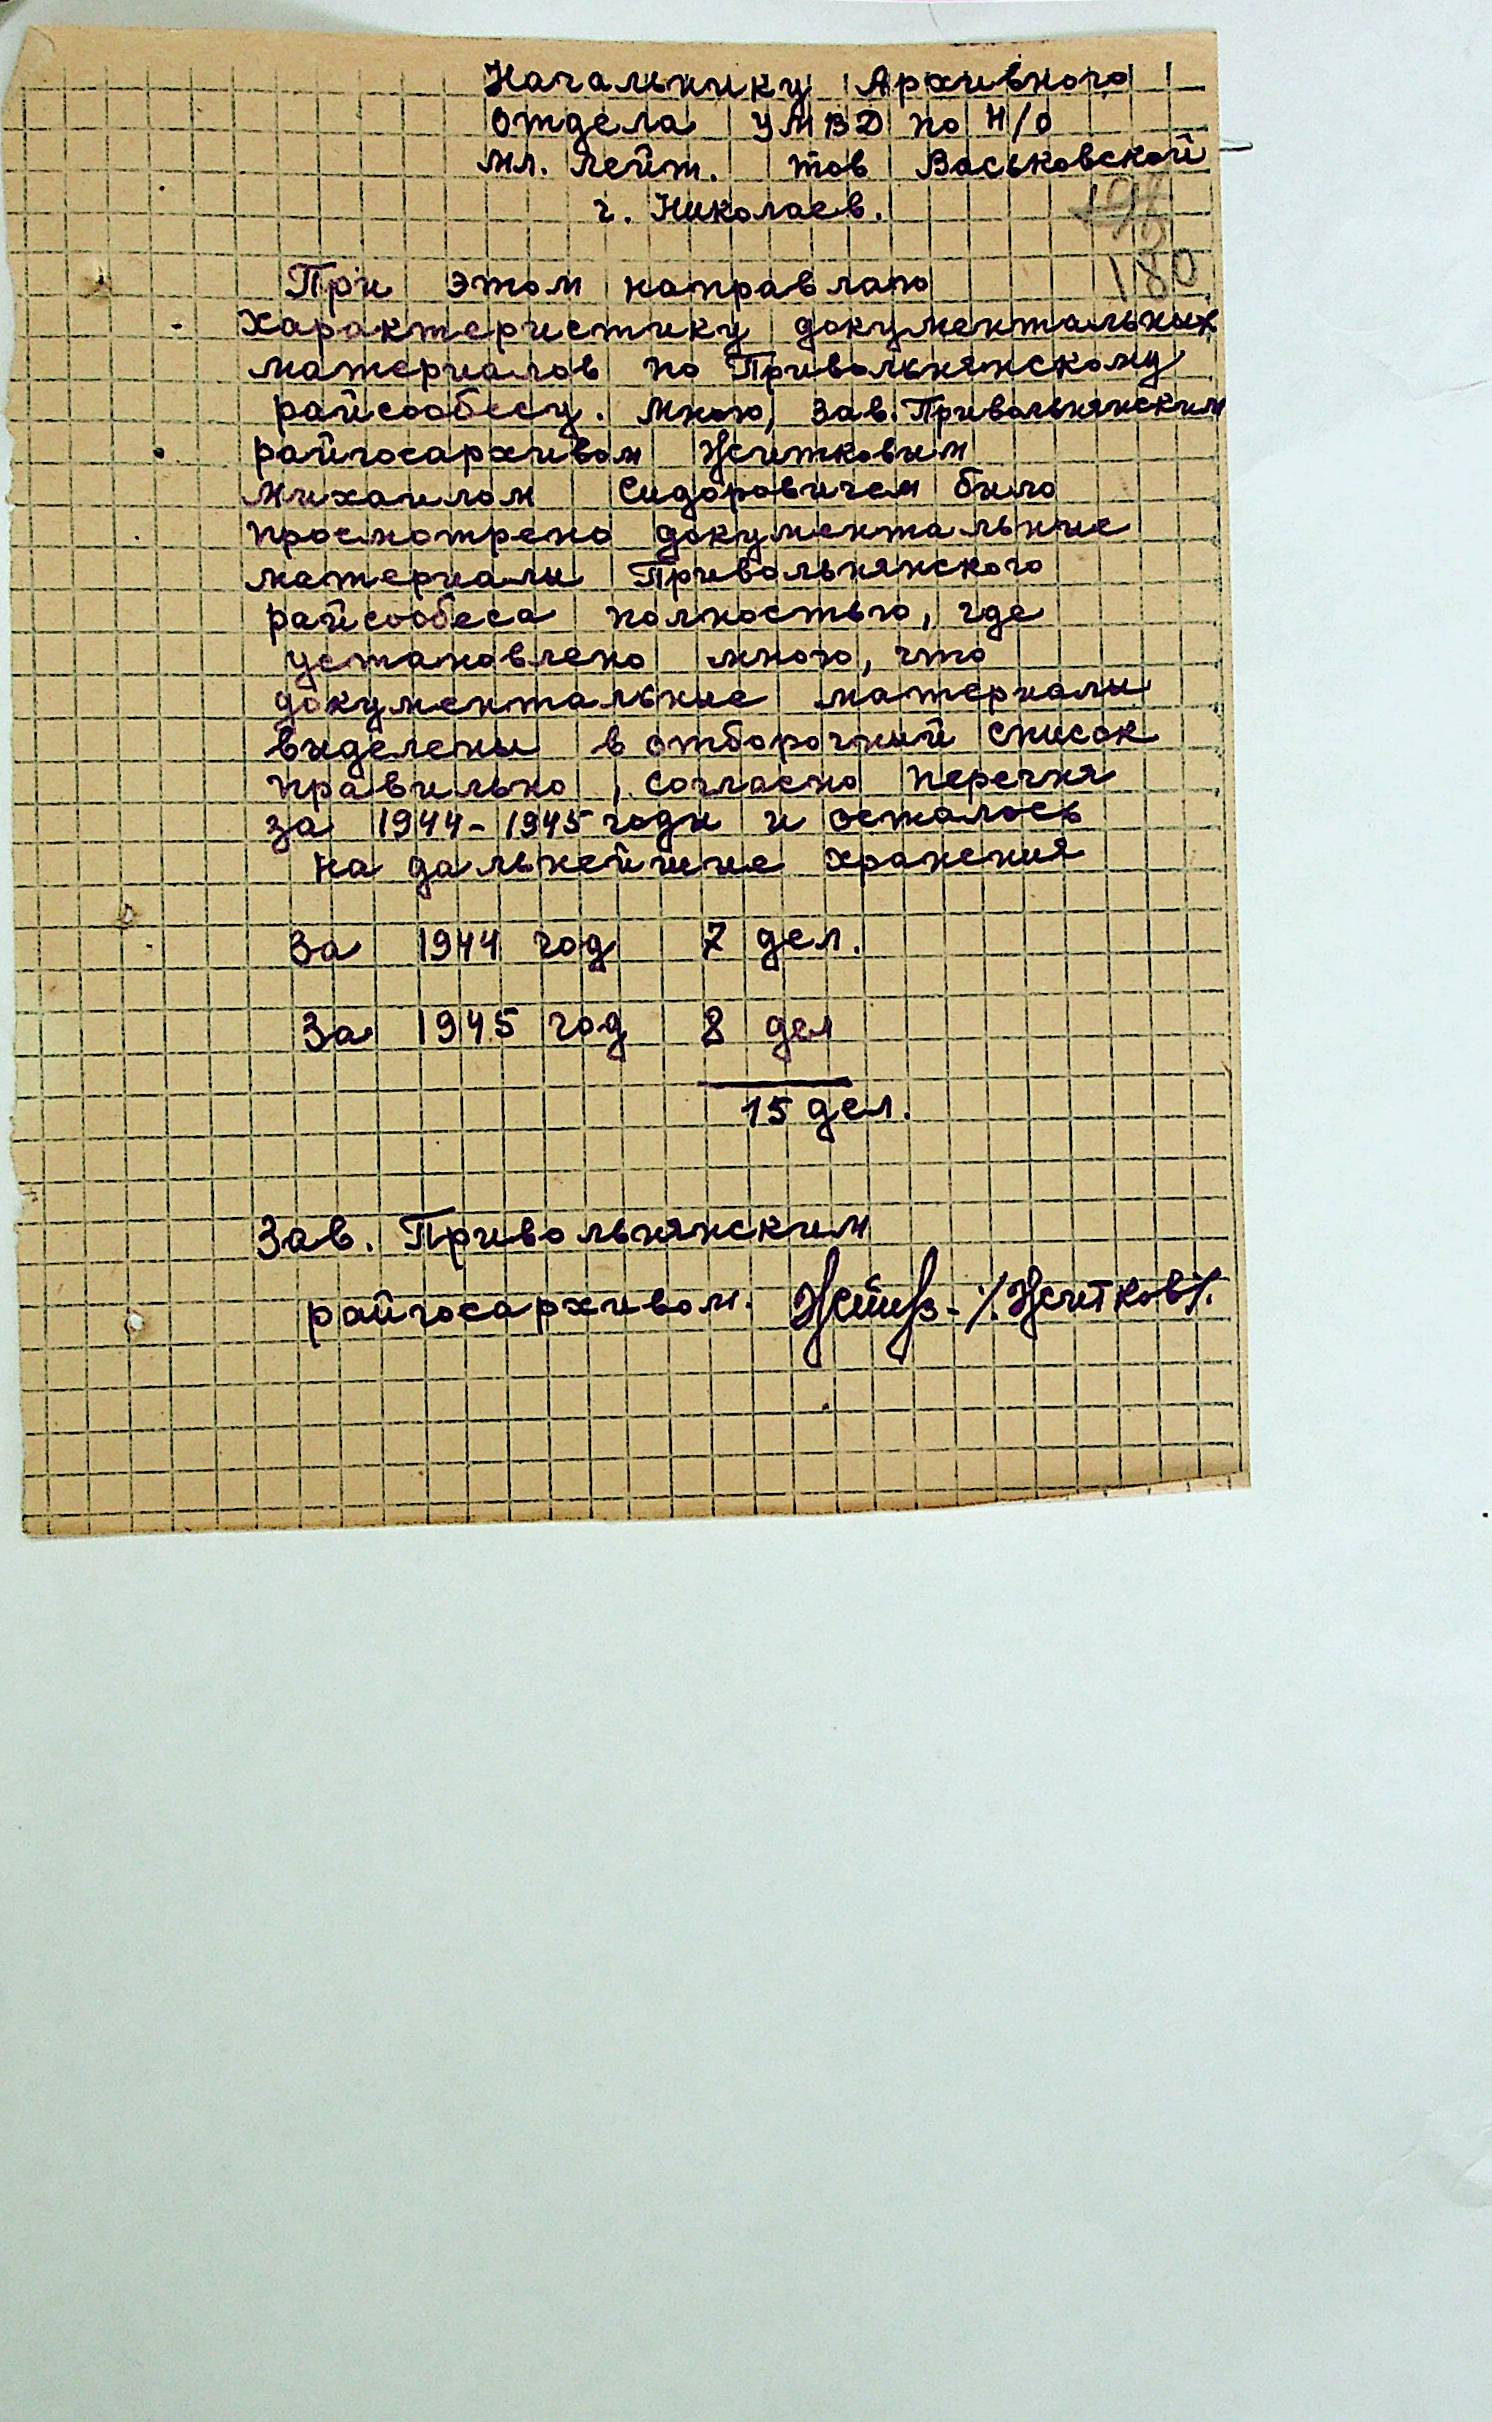 Начальнику Архивного
отдела УМВД по Н/О
мл. лейт. тов Васьковской
г. Николаев.
180
При этом направлаю
характеристику документальных
материалов по Привольнянскому
райсообесу. Мною, Зав. Привольнянским
райгосархивом Житковым
Михаилом Сидоровичем было
просмотрено документальные
материалы Привольнянского
райсообеса полностью, где
установлено мною, что
документальные материалы
выделены в отборочный список
правильно, согласно перечня
за 1944-1945 годы и осталось
на дальнейшие хранения
За 1944 год 7 дел.
За 1945 год 8 дел
15 дел.
Зав. Привольнянским
райгосархивом. /Житков/.